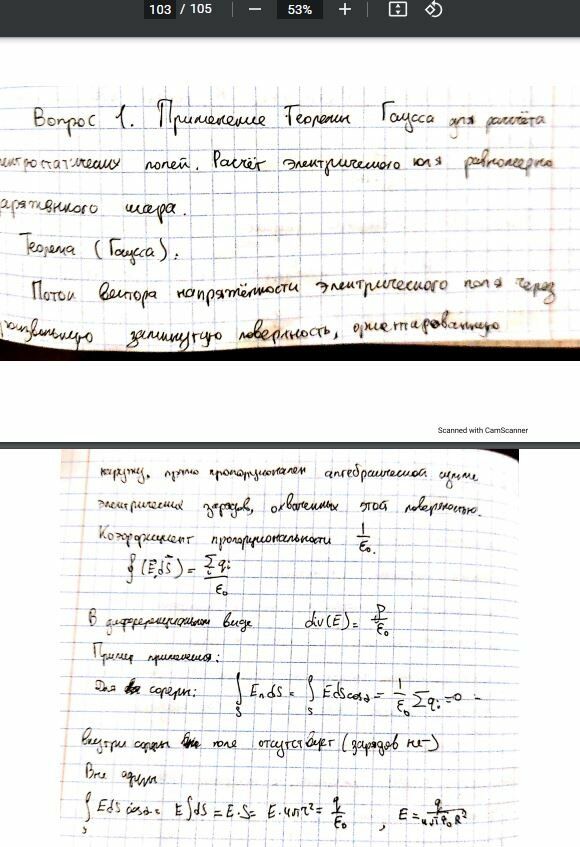 103 / 105 — 53% +
Вопрос 1. Применение Теоремы Гаусса для расчёта
электростатических полей. Расчёт электрического поля равномерно
заряженного шара.
Теорема (Гаусса).
Поток вектора напряжённости электрического поля через
произвольную замкнутую поверхность, ориентированную
Scanned with CamScanner
наружу, прямо пропорционален алгебраической сумме
электрических зарядов, охваченных этой поверхностью.
Коэффициент пропорциональности 1/ε₀.
∮(E,dS) = Σqᵢ/ε₀
В дифференциальном виде div(E) = ρ/ε₀
Пример применения:
Для сферы: ∫ₛ EₙdS = ∫ₛ EdScosα = 1/ε₀ Σqᵢ = 0 –
внутри сферы поле отсутствует (зарядов нет)
Вне сферы
∫ₛ EdScosα = E∫dS = E·S = E·4πr² = q/ε₀ , E = q/4πε₀R²